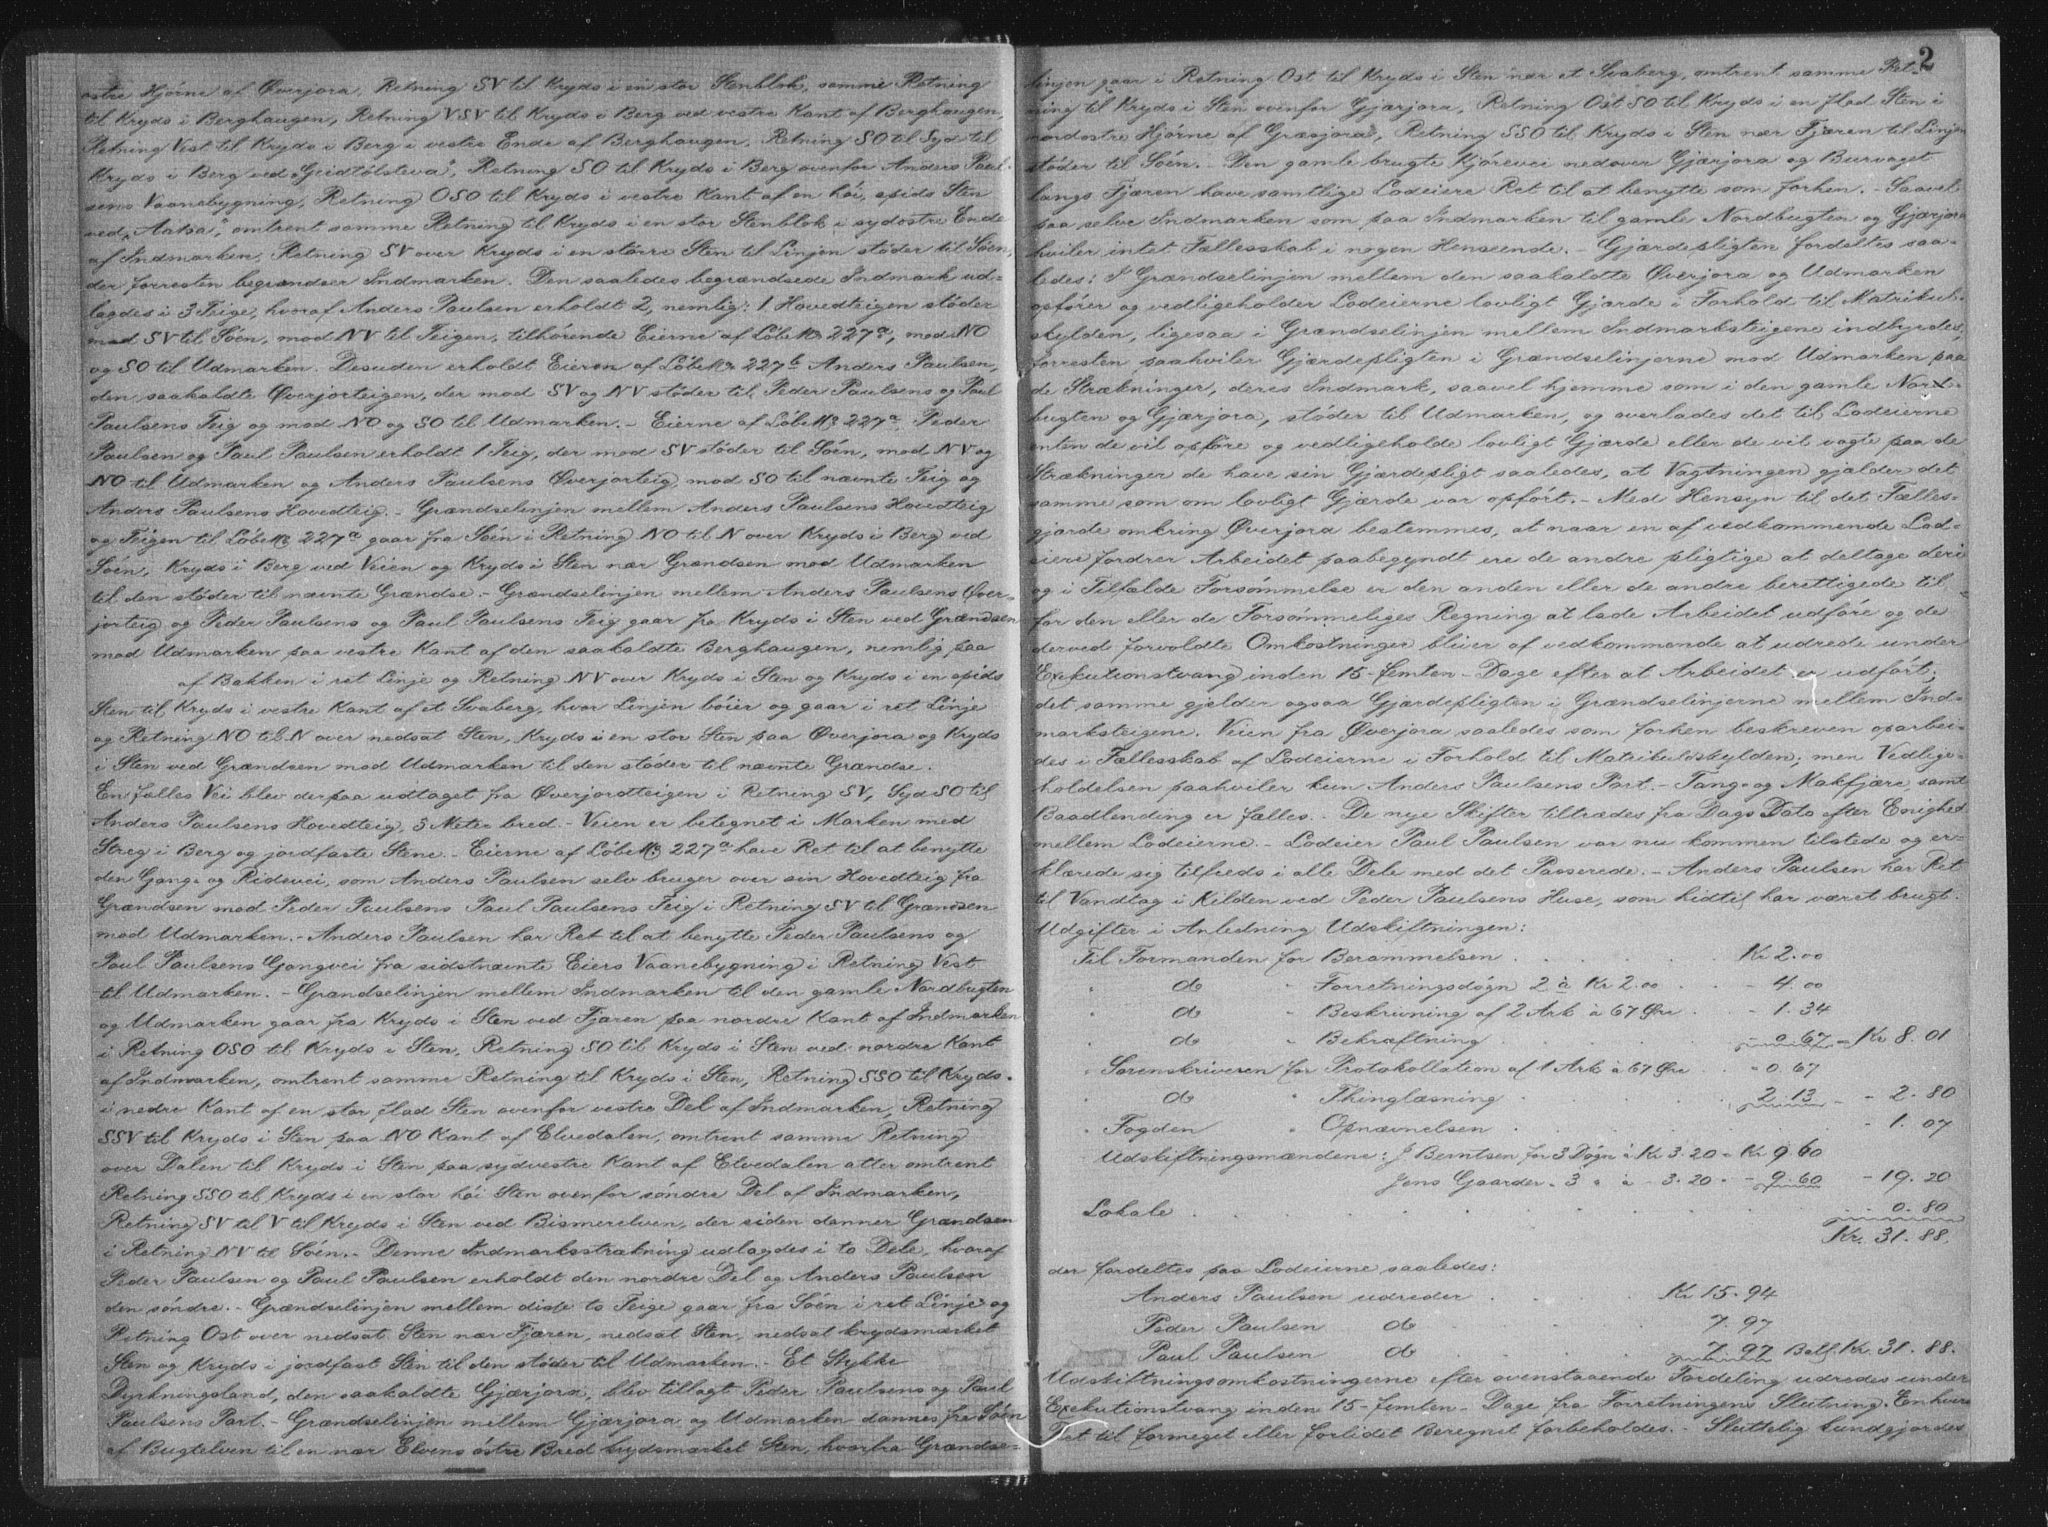 østre Hjørne af Øverjora, Retning SV til Kryds i en stor Stenblok, samme Retning
til Kryds i Berghaugen, Retning VSV til Kryds i Berg ved vestre Kant af Berghaugen,
Retning Vest til Kryds i Berg i vestre Ende af Berghaugen, Retning SO til Syd til
Kryds i Berg ved „Geidtölsteva“, Retning SO til Kryds i Berg ovenfor Anders Paul-
sens Vaanebygning, Retning OSO til Kryds i vestre Kant af en höi, spids Sten
ved „Aaksa“, omtrent samme Retning til Kryds i en stor Stenblok i sydostre Ende
af Indmarken, Retning SV over Kryds i en större Sten til Linjen stöder til Søen,
der forresten begrændser Indmarken. Den saaledes begrændsede Indmark ud-
lagdes i 3 Teige, hvoraf Anders Paulsen erholdt 2, nemlig: 1 Hovedteigen stöder
mod SV til Söen, mod NV til Teigen, tilhörende Eierne af Löbe № 227a, mod NO
og SO til Udmarken. Desuden erholdt Eieren af Löbe № 227b Anders Paulsen,
den saakaldte Øverjorteigen, der mod SV og NV stöder til Peder Paulsens og Paul
Paulsens Teig og mod NO og SO til Udmarken. - Eierne af Löbe № 227a, Peder
Paulsen og Paul Paulsen erholdt 1 Teig, der mod SV stöder til Söen, mod NV og
NO til Udmarken og Anders Paulsens Øverjorteig, mod SO til nævnte Teig og
Anders Paulsens Hovedteig. - Grændselinjen mellem Anders Paulsens Hovedteig
og Teigen til Löbe № 227a gaar fra Söen i Retning NO til N over Kryds i Berg ved
Söen, Kryds i Berg ved Veien og Kryds i Sten nær Grændsen mod Udmarken
til den stöder til nævnte Grændse. - Grændselinjen mellem Anders Paulsens Øver-
jorteig og Peder Paulsens og Paul Paulsens Teig gaar fra Kryds i Sten ved Grændsen
mod Udmarken paa vestre Kant af den saakaldte Berghaugen, nemlig paa
af Bakken i ret Linje og Retning NV over Kryds i Sten og Kryds i en spids
Sten til Kryds i vestre Kant af et Svaberg, hvor Linjen böier og gaar i ret Linje
og Retning NO til N over nedsat Sten, Kryds i en stor Sten paa Øverjora og Kryds
i Sten ved Grændsen mod Udmarken til den stöder til nævnte Grændse.
En fælles Vei blev derpaa udtaget fra Øverjordteigen i Retning SV, Syd SO til
Anders Paulsens Hovedteig, 3 Meter bred. - Veien er betegnet i Marken med
Streg i Berg og jordfaste Stene. - Eierne af Löbe № 227a have Ret til at benytte
den Gang- og Ridevei, som Anders Paulsen selv bruger over sin Hovedteig fra
Grændsen mod Peder Paulsens Paul Paulsens Teig i Retning SV til Grændsen
mod Udmarken. - Anders Paulsen har Ret til at benytte Peder Paulsens og
Paul Paulsens Gangvei fra sidstnævnte Eiers Vaanebygning i Retning Vest
til Udmarken. - Grændselinjen mellem Indmarken til den gamle Nordbugten
og Udmarken gaar fra Kryds i Sten ved Fjæren paa nordre Kant af Indmarken
i Retning OSO til Kryds i Sten, Retning SO til Kryds i Sten ved nordre Kant
af Indmarken, omtrent samme Retning til Kryds i Sten, Retning SSO til Kryds
i nedre Kant af en stor flad Sten ovenfor vestre Del af Indmarken, Retning
SSV til Kryds i Sten paa NO Kant af Elvedalen, omtrent samme Retning
over Dalen til Kryds i Sten paa sydvestre Kant af Elvedalen atter omtrent
Retning SSO til Kryds i en stor höi Sten ovenfor söndre Del af Indmarken,
Retning SV til V til Kryds i Sten ved Bismerelven, der siden danner Grændsen
i Retning NV til Söen. - Denne Indmarksstrækning udlagdes i to Dele, hvoraf
Peder Paulsen og Paul Paulsen erholdt den nordre Del og Anders Paulsen
den söndre. - Grændselinjen mellem disse to Teige gaar fra Söen i ret Linje og
Retning Ost over nedsat Sten nær Fjæren, nedsat Sten, nedsat krydsmærket
Sten og Kryds i jordfast Sten til den stöder til Udmarken. - Et Stykke
Dyrkningsland, den saakaldte Gjærjora, blev tillagt Peder Paulsens og Paul
Paulsens Part. - Grændselinjen mellem Gjærjora og Udmarken dannes fra Söen
af Bugtelven til en nær Elvens östre Bred krydsmærket Sten, hvorfra Grændse-
2
linjen gaar i Retning Ost til Kryds i Sten nær et Svaberg, omtrent samme Ret-
ning til Kryds i Sten ovenfor Gjærjora, Retning Ost SO til Kryds i en flad Sten i
nordostre Hjörne af Græsjora, Retning SSO til Kryds i Sten nær Fjæren til Linjen
stöder til Söen. - Den gamle brugte Kjörevei nedover Gjærjora og Burvaget
langs Fjæren have samtlige Lodeiere Ret til at benytte som forhen. - Saavel
paa selve Indmarken som paa Indmarken til gamle Nordbugten og Gjærjora
hviler intet Fællesskab i nogen Henseende. - Gjærdepligten fordeltes saa-
ledes: I Grændselinjen mellem den saakaldte Øverjora og Udmarken
opförer og vedligeholder Lodeierne lovligt Gjærde i Forhold til Matrikul-
skylden, ligesaa i Grændselinjen mellem Indmarksteigene indbyrdes,
forresten paahviler Gjærdepligten i Grændselinjerne mod Udmarken paa
de Strækninger, deres Indmark, saavel hjemme som i den gamle Nord-
bugten og Gjærjora, stöder til Udmarken, og overlades det til Lodeierne
enten de vil opföre og vedligeholde lovligt Gjærde eller de vil vogte paa de
Strækninger de have sin Gjærdepligt saaledes, at Vagtningen gjælder det
samme som om lovligt Gjærde var opfört. - Med Hensyn til det Fælles-
gjærde omkring Øverjora bestemmes, at naar en af vedkommende Lod-
eiere fordrer Arbeidet paabegyndt ere de andre pligtige at deltage deri
og i Tilfælde Forsömmelse er den anden eller de andre berettigede til
for den eller de Forsömmeliges Regning at lade Arbeidet udföre og de
derved forvoldte Omkostninger bliver af vedkommende at udrede under
Exekutionstvang inden 15 - femten - Dage efter at Arbeidet er udfört;
det samme gjelder ogsaa Gjærdepligten i Grændselinjerne mellem Ind-
marksteigene. Veien fra Øverjora saaledes som forhen beskreven oparbei-
des i Fællesskab af Lodeierne i Forhold til Matrikulskylden, men Vedlige-
holdelsen paahviler kun Anders Paulsens Part. - Tang- og Makfjære, samt
Baadlending er fælles. - De nye Skifter tiltrædes fra Dags Dato efter Enighed
mellem Lodeierne. - Lodeier Paul Paulsen var nu kommen tilstede og er-
klærede sig tilfreds i alle Dele med det Passerede. - Anders Paulsen har Ret
til Vandtag i Kilden ved Peder Paulsens Huse, som hidtil har været brugt.
Udgifter i Anledning Udskiftningen:
Til Formanden for Berammelsen . . . . Kr 2.00
" do " Forretningsdøgn 2 à Kr 2.00 . . - 4.00
" do " Beskrivning af 2 Ark à 67 Øre . . - 1.34
" do " Bekræftning . . . . - 0.67 - Kr 8.01
" Sorenskriveren for Protokollation af 1 Ark à 67 Øre . - 0.67
" do " Thinglæsning . . . . 2.13 - - 2.80
" Fogden " Opnævnelsen . . . . - 1.07
- Udskiftningsmændene: J Berntsen for 3 Døgn à Kr 3.20 - Kr 9.60
Jens Gaarder - 3 " à - 3.20 - - 9.60 - 19.20
Lokale . . . . 0.80
Kr. 31.88.
der fordeltes paa Lodeierne saaledes:
Anders Paulsen udreder . . . . Kr 15.94
Peder Paulsen do . . . . 7.97
Paul Paulsen do . . . . 7.97 Bell. Kr. 31.88.
Udskiftningsomkostningerne efter ovenstaaende Fordeling udredes under
Exekutionstvang inden 15 - femten - Dage fra Forretningens Slutning. Enhvers
Ret til formeget eller forlidet Beregnet forbeholdes. - Sluttelig kundgjordes